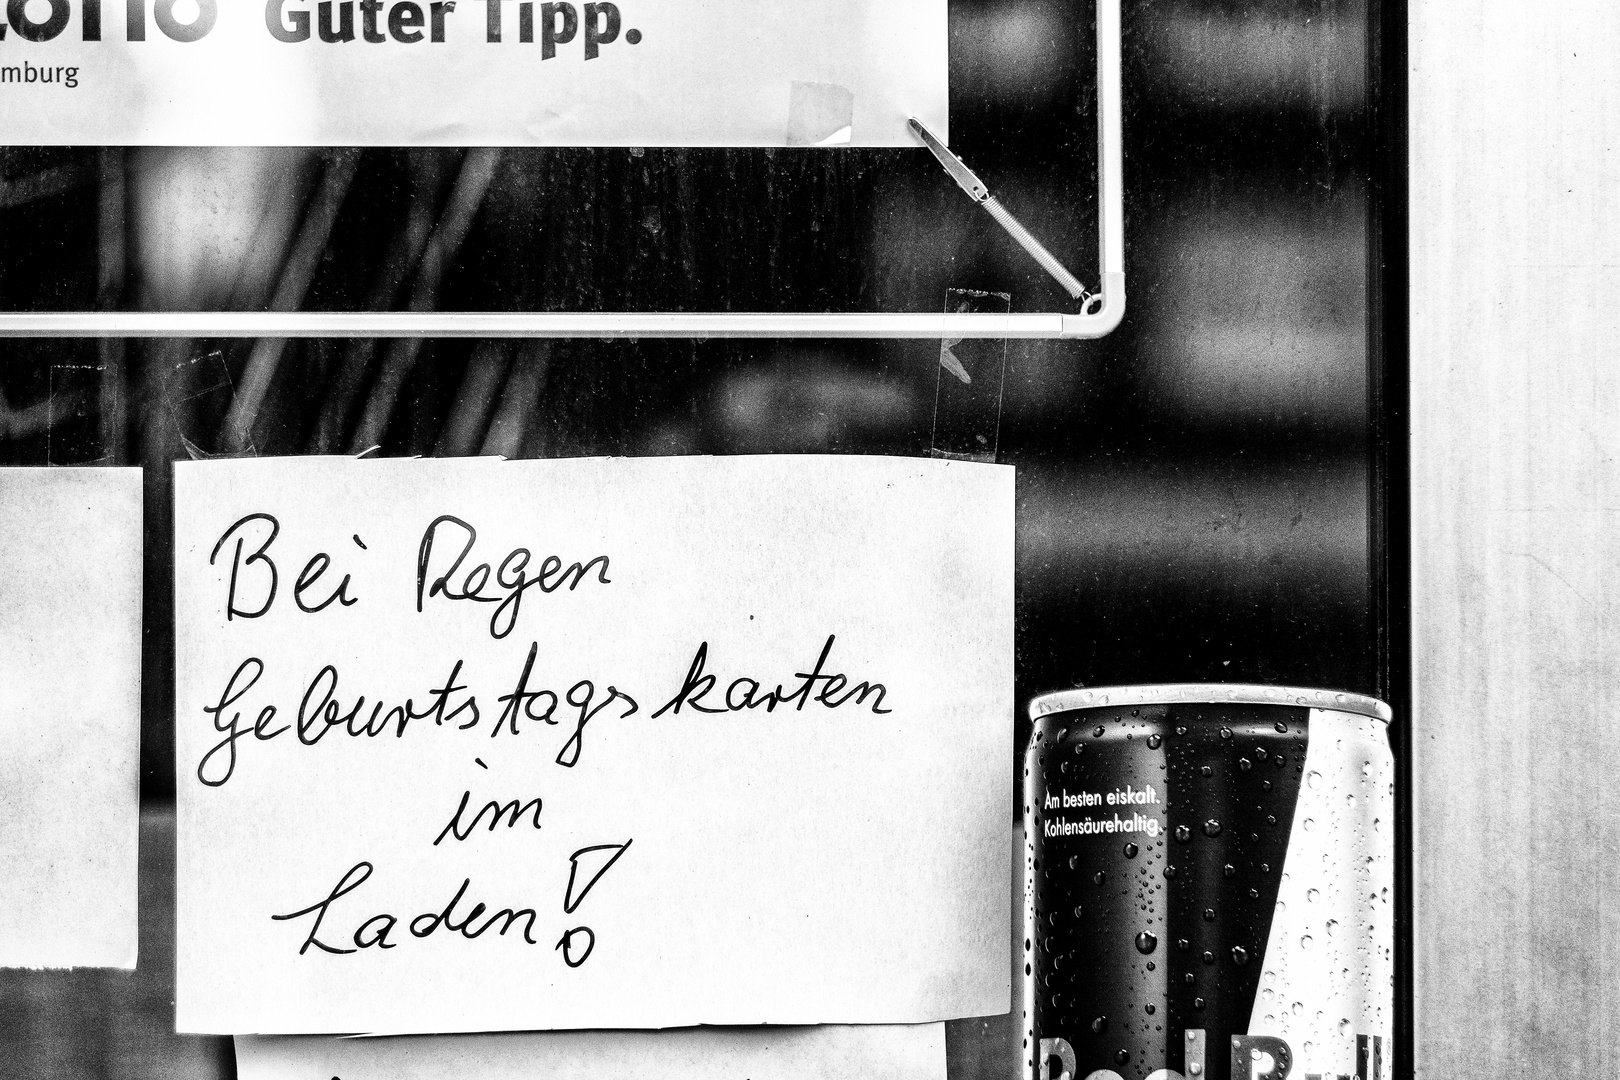 Guter Tipp.
Bei Regen
Geburtstagskarten
im
Laden!
Am besten eiskalt.
Kohlensäurehaltig.
Red Bull